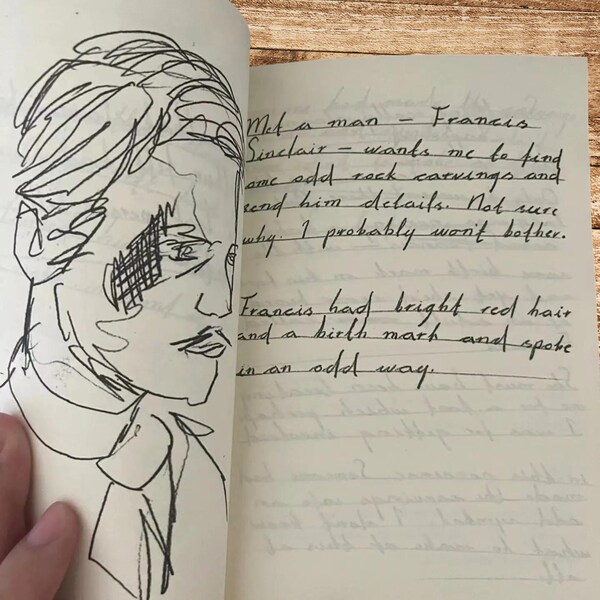 Met a man – Francis
Sinclair – wants me to find
some odd rock carvings and
send him details. Not sure
why. I probably won't bother.
Francis had bright red hair
and a birth mark and spoke
in an odd way.